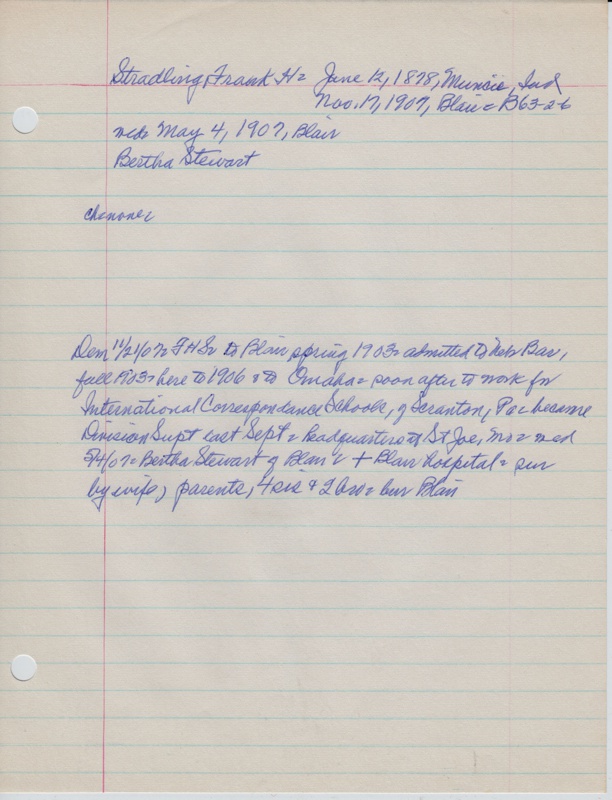 Stradling, Frank H= June 12, 1878, Muncie, Ind
Nov. 17, 1907, Blair = B63-2-6
md= May 4, 1907, Blair
Bertha Stewart
ch=none=
Dem 11/21/07= FHS= to Blair spring 1903= admitted to Neb Bar,
fall 1903= here to 1906 & to Omaha= soon after to work for
International Correspondance Schools, of Scranton, Pa= became
Division Supt last Sept= headquarters at St Joe, Mo= md
5/4/07= Bertha Stewart of Blair= + Blair hospital= sur
by wife, parents, 4 sis & 2 bro= bur Blair